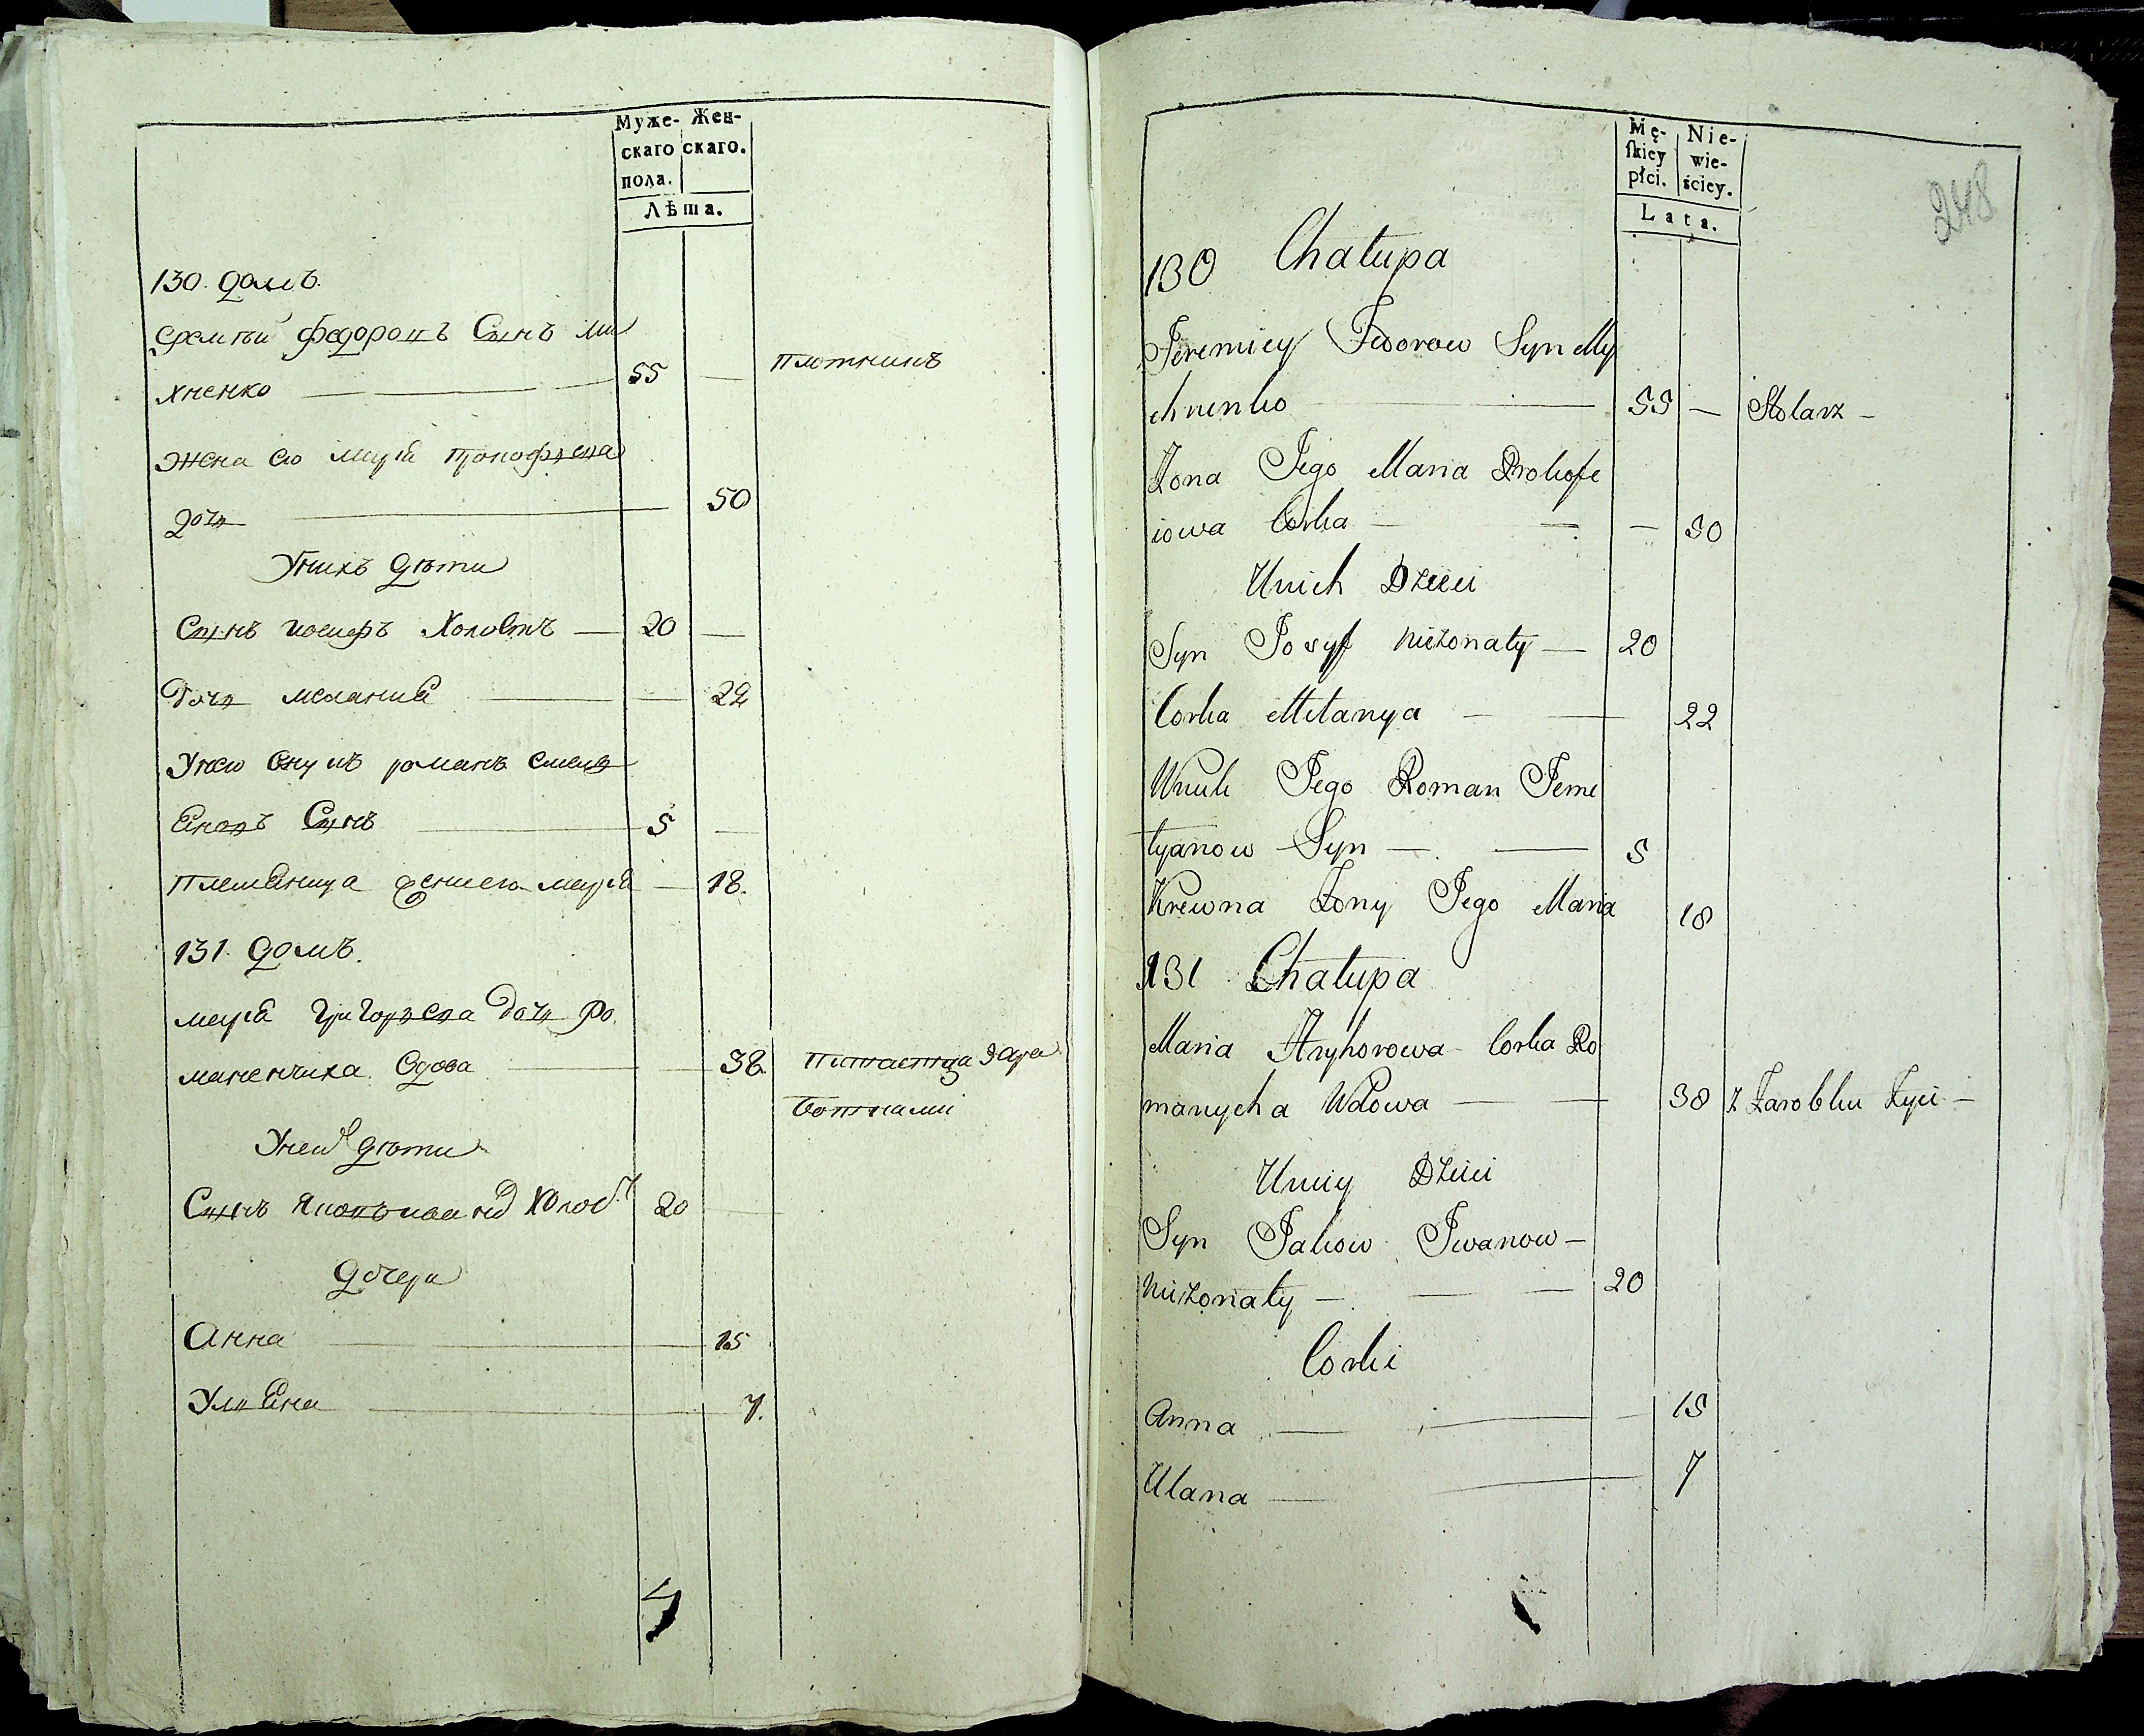 Муже- Жен-
скаго скаго.
пола.
Лѣта.
130. домъ.
Еремѣй Федоровъ Сынъ Ми
хненко 55 — плотникъ
жена его марїя прокофьева
дочь 50
У нихъ дѣти
Сынъ иосифъ Холостъ — 20 —
Дочь мелания — 22
У него внукъ романъ емель
яновъ Сынъ 5 —
племяница жены его марїя — 18.
131. домъ.
марїя григорьева дочь Ро
маненчиха вдова 38. питается зара
ботками
У ней дѣти
Сынъ яковъ ивановъ Холос. 20
дочери
Анна 15
Ульяна 7.
Mę- Nie-
skiey wie-
płci. ściey.
Lata.
248
130 Chałupa
Jeremiey Fedorow Syn My
chnenko 55 — Stolarz —
Żona Jego Maria Prokofe
iowa Corka — — — 50
U nich Dzieci
Syn Josyf nieżonaty — 20
Corka Mełanya — — 22
Wnuk Jego Roman Jeme
łyanow Syn — — 5
Krewna Żony Jego Maria 18
131 Chałupa
Maria Hryhorowa Corka Ro
manycha Wdowa — — 38 z Zarobku Żyie —
U niey Dzieci
Syn Jakow Iwanow —
nieżonaty — — — 20
Corki
Anna — — 15
Ulana — 7